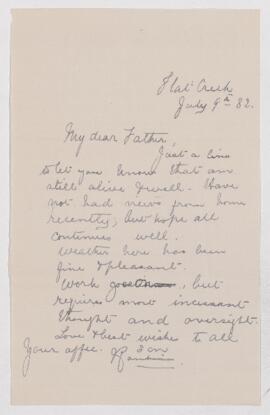 Flat Creek
July 9th 82.
My dear Father,
Just a line
to let you know that am
still alive & well. Have
not had news from home
recently, but hope all
continues well.
Weather here has been
fine & pleasant.
Work , but
requires most incessant
thought and oversight.
Love & best wishes to all
Your affec. Son